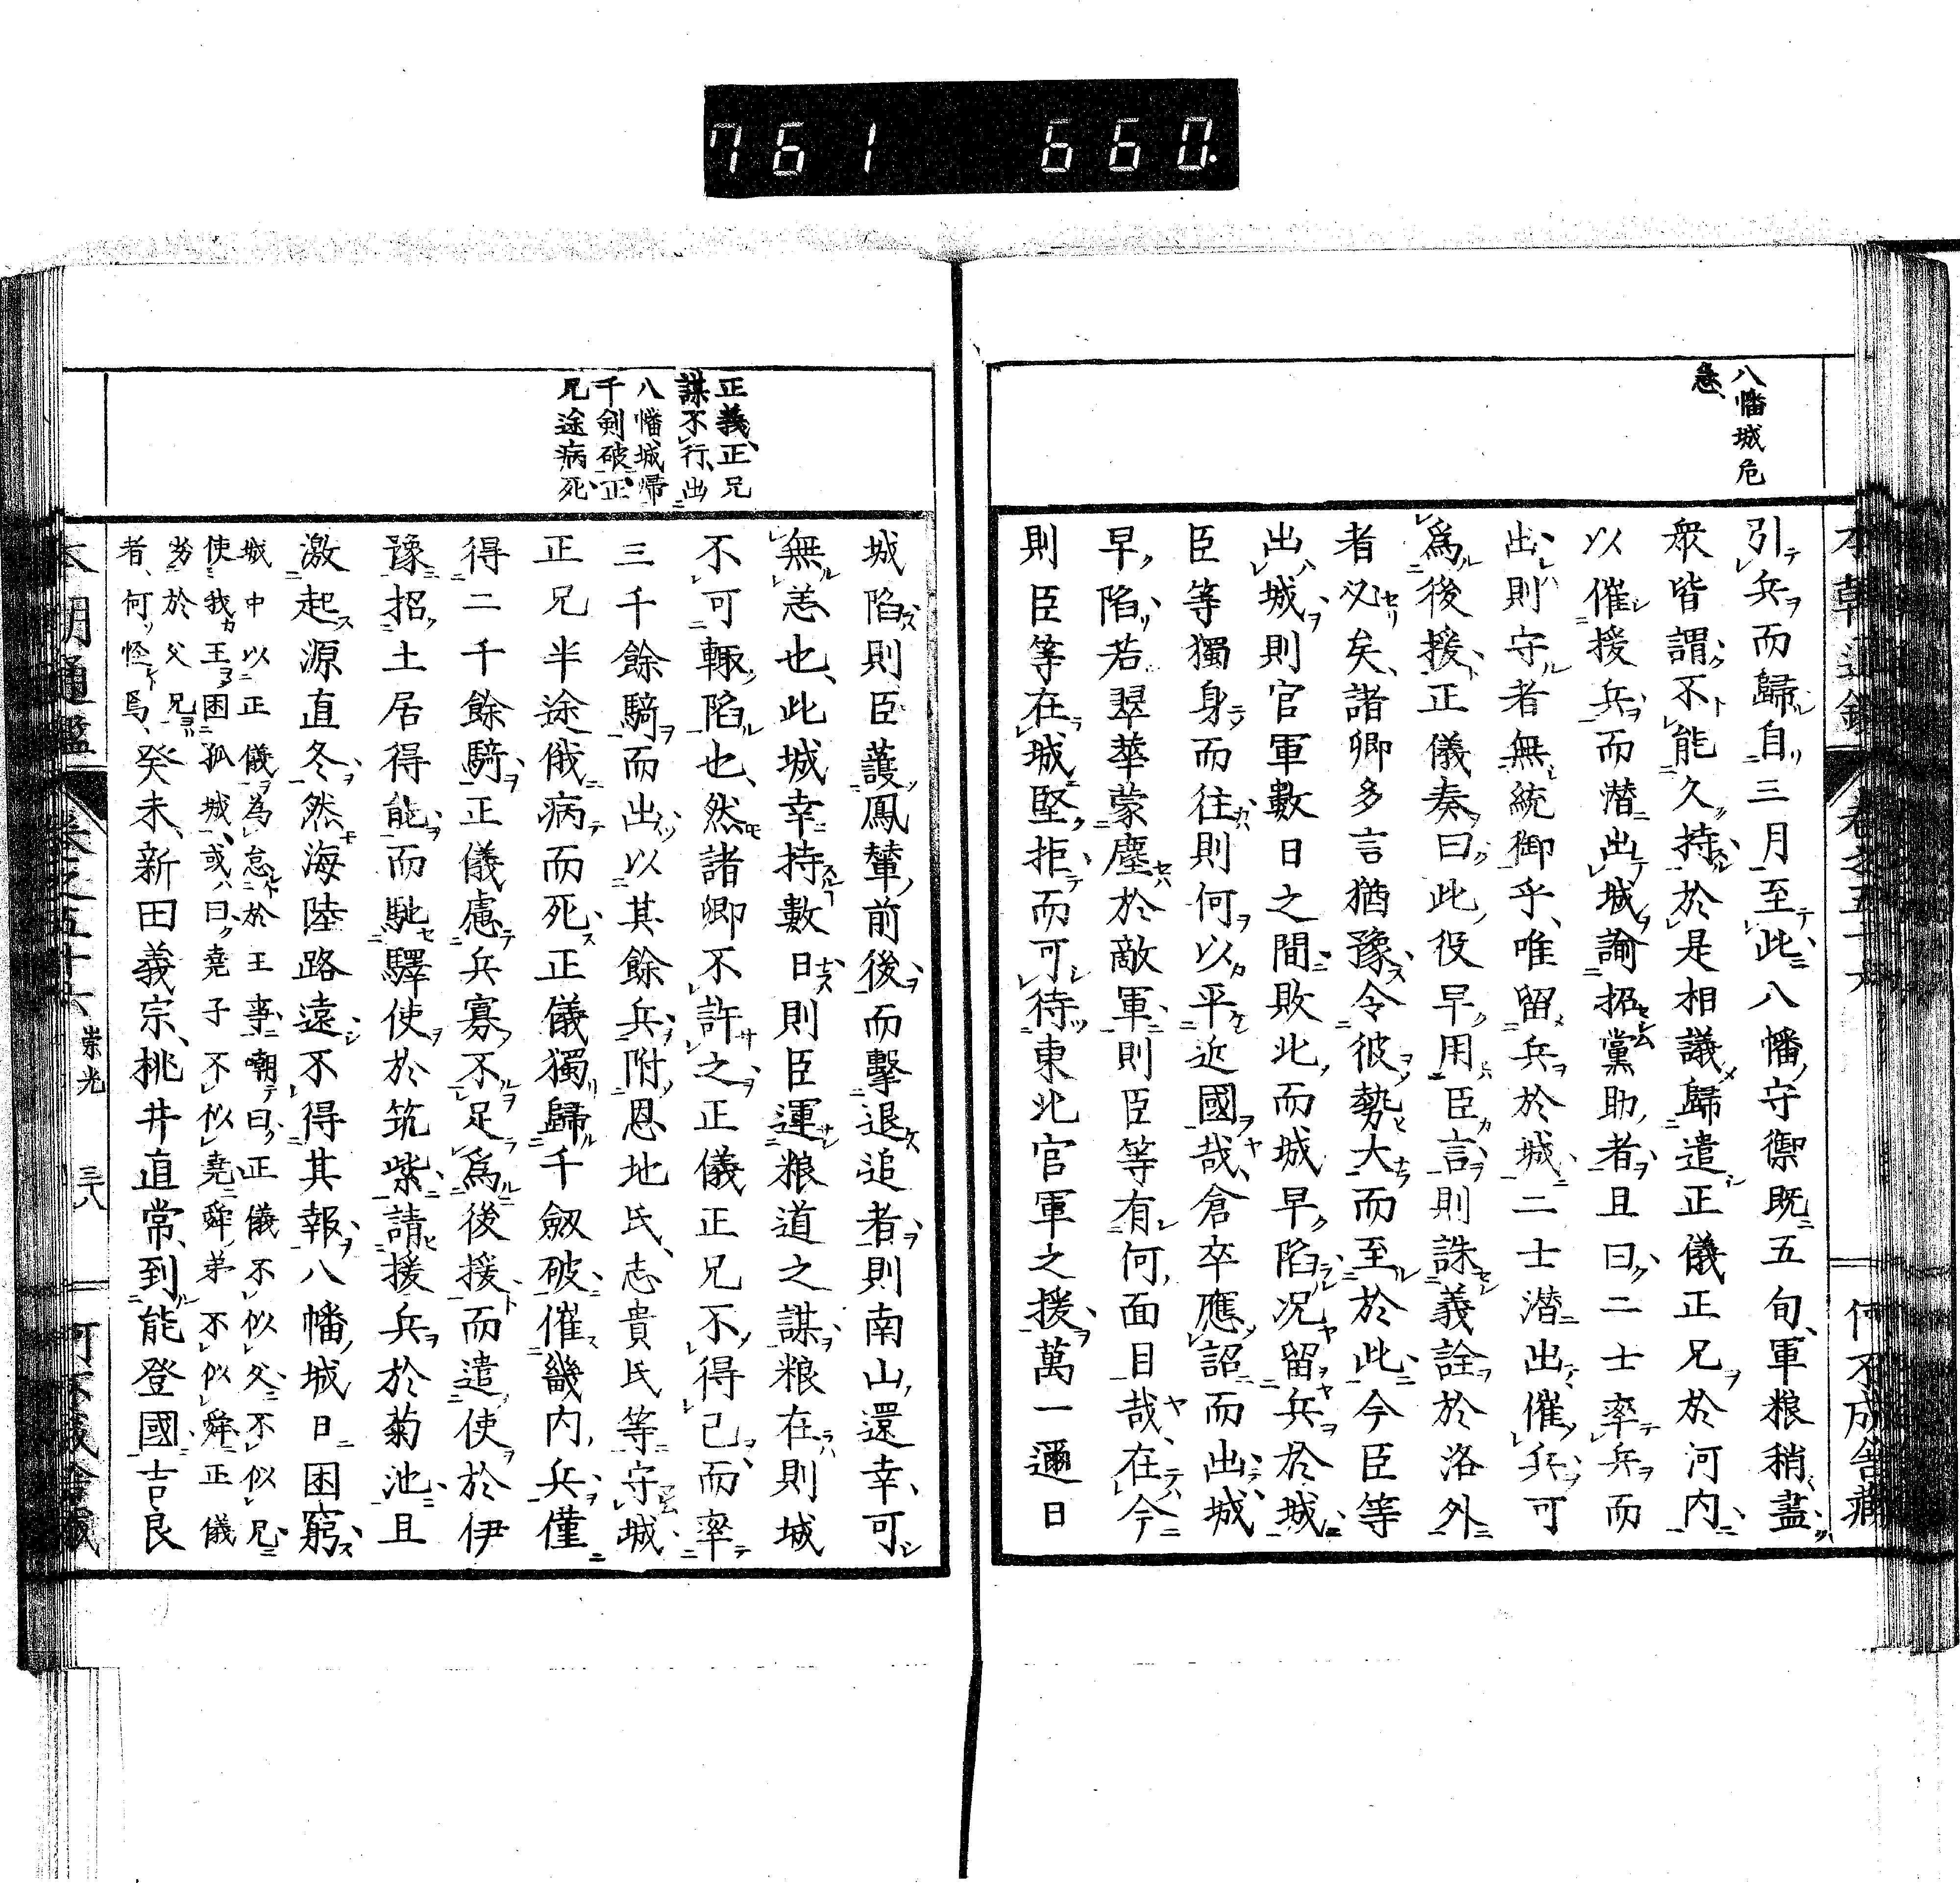 761 660.
八幡城危
急
引兵而歸自三月至此八幡守禦既五旬軍粮稍盡
衆皆謂不能久持於是相議歸遣正儀正兄於河内
以催援兵而潜出城諭招黨助者且曰二士率兵而
出則守者無統御乎唯留兵於城二士潜出催兵可
爲後援正儀奏曰此役早用臣言則誅義詮於洛外
者必矣諸卿多言猶豫令彼勢大而至於此今臣等
出城則官軍數日之間敗北而城早陷况留兵於城
臣等獨身而往則何以平近國哉倉卒應詔而出城
早陷若翠華蒙塵於敵軍則臣等有何面目哉在今
則臣等在城堅拒而可待東北官軍之援萬一遁日
正義正兄
謀不行出
八幡城帰
千剣破正
兄途病死
城陷則臣護鳳輦前後而擊退追者則南山還幸可
無恙也此城幸持數日則臣運粮道之謀粮在則城
不可輙陷也然諸卿不許之正儀正兄不得已而率
三千餘騎而出以其餘兵附恩地氏志貴氏等守城
正兄半途俄病而死正儀獨歸千劔破催畿内兵僅
得二千餘騎正儀慮兵寡不足爲後援而遣使於伊
豫招土居得能而馳驛使於筑紫請援兵於菊池且
激起源直冬然海陸路遠不得其報八幡城日困窮
城中以正儀為怠於王事嘲曰正儀不似父不似兄
使我王困孤城或曰堯子不似堯舜弟不似舜正儀
劣於父兄
者何怪焉癸未新田義宗桃井直常到能登國吉良
本朝通鑑 卷之五十六 崇光 三八